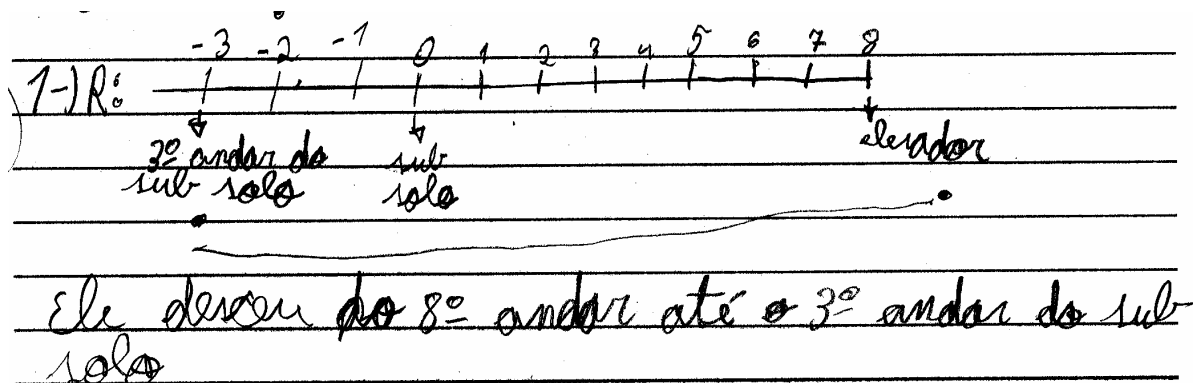 -3 -2 -1 0 1 2 3 4 5 6 7 8
1-) R:
3º andar do sub solo
sub solo elevador
sub solo
Ele desceu do 8º andar até o 3º andar do sub
solo